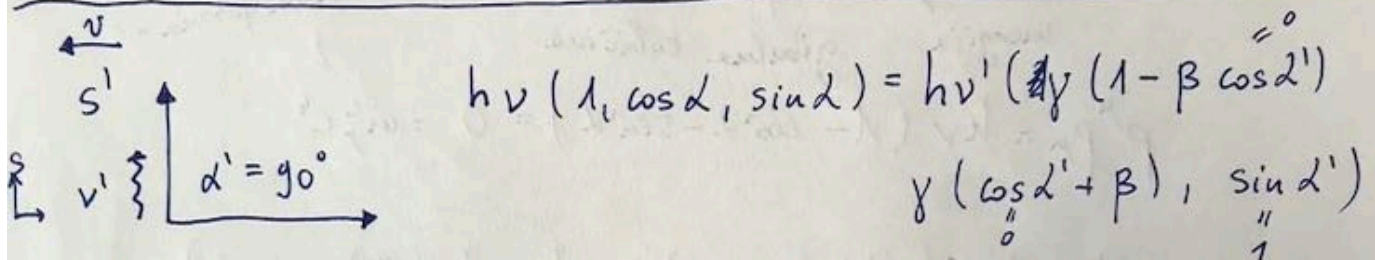 v
S'
S
ν' α' = 90°
hν (1, cos α, sin α) = hν' (γ (1 - β cos α')
= 0
γ (cos α' + β), sin α')
= 0
= 1